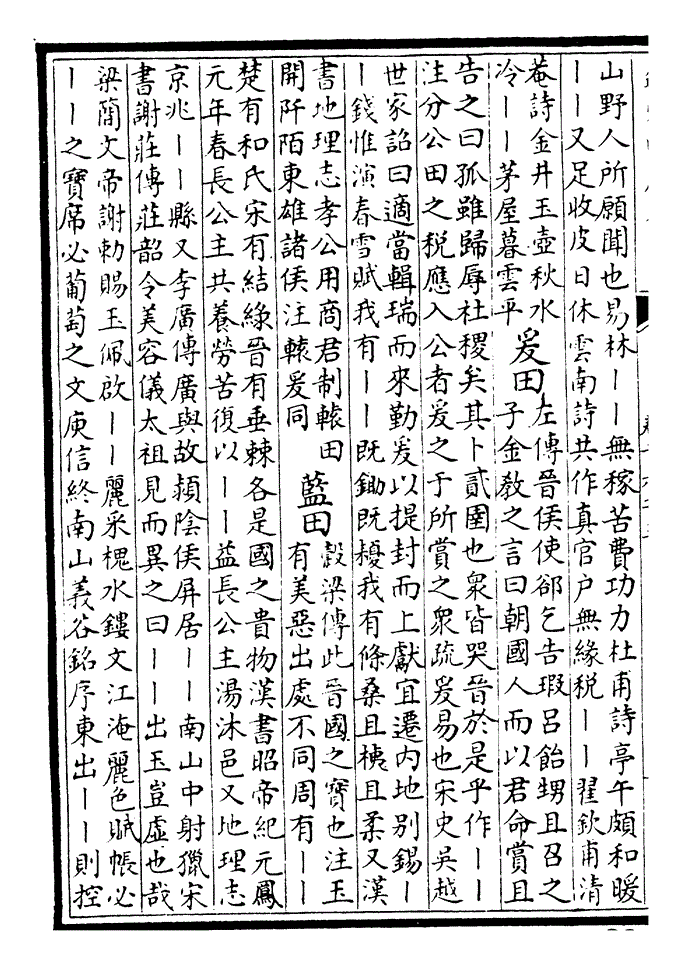 山野人所願聞也易林一一無稼苦費功力杜甫詩亭午頗和暖
一一又足收皮日休雲南詩共作真官户無緣税一一翟欽甫清
菴詩金井玉壺秋水
冷一一茅屋暮雲平
爰田
左傳晉侯使郤乞告瑕呂飴甥且召之
子金教之言曰朝國人而以君命賞且
告之曰孤雖歸辱社稷矣其卜貳圉也衆皆哭晉於是乎作一一
注分公田之税應入公者爰之于所賞之衆疏爰易也宋史吳越
世家詔曰適當輯瑞而來勤爰以提封而上獻宜遷内地别錫一
一錢惟演春雪賦我有一一既鋤既耰我有條桑且桋且柔又漢
書地理志孝公用商君制轅田
開阡陌東雄諸侯注轅爰同
藍田
穀梁傳此晉國之寶也注玉
有美惡出處不同周有一一
楚有和氏宋有結緣晉有垂棘各是國之貴物漢書昭帝紀元鳳
元年春長公主共養勞苦復以一一益長公主湯沐邑又地理志
京兆一一縣又李廣傳廣與故潁陰侯屏居一一南山中射獵宋
書謝莊傳莊韶令美容儀太祖見而異之曰一一出玉豈虛也哉
梁簡文帝謝勅賜玉佩啟一一麗采槐水鏤文江淹麗色賦帳必
一一之寶席必葡萄之文庾信終南山義谷銘序東出一一則控